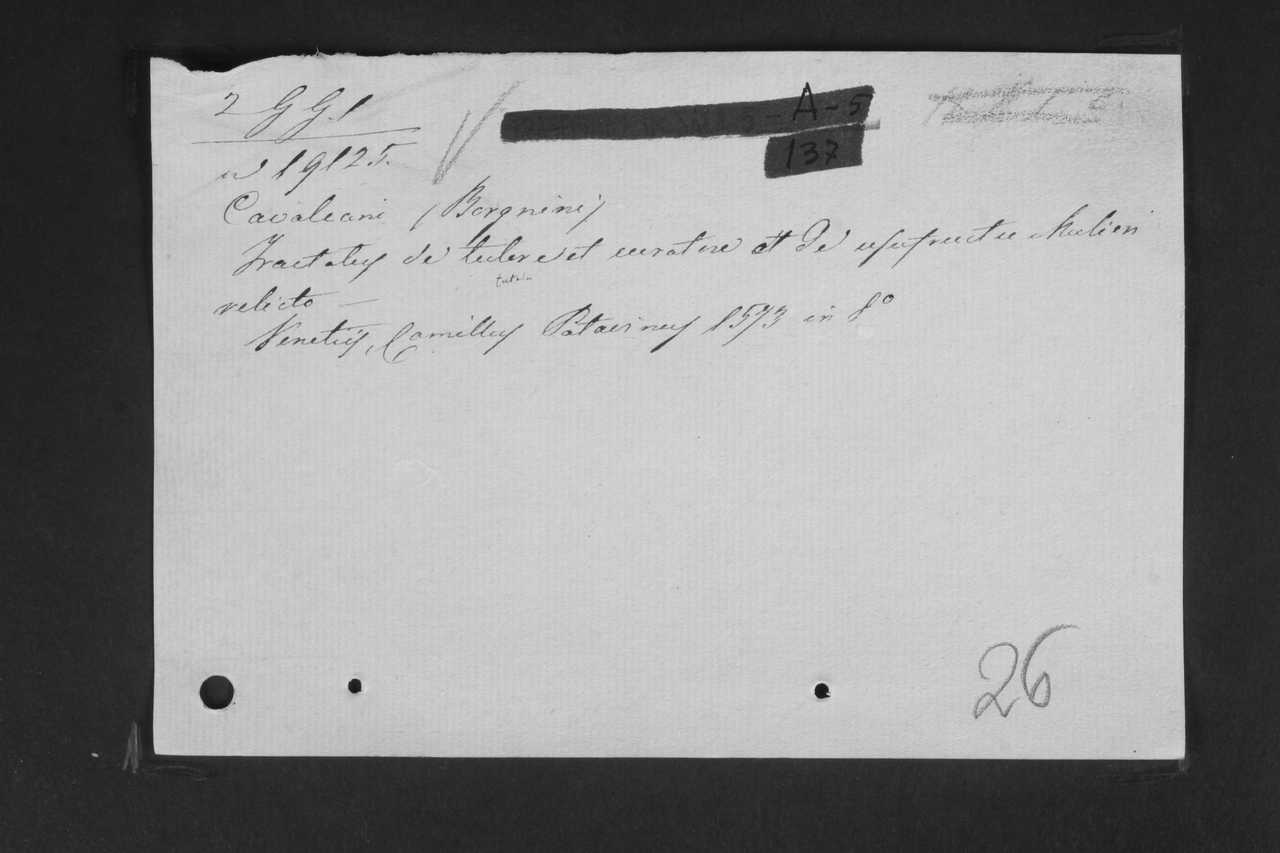 2 G G.1
A-5
137
nº 19125.
Cavalcani (Borgnini)
Tractatus de tutore et curatore et de usufructu Mulieri
tutore
relicto —
Venetijs, Camillus Patavinus 1573 in 8º
26